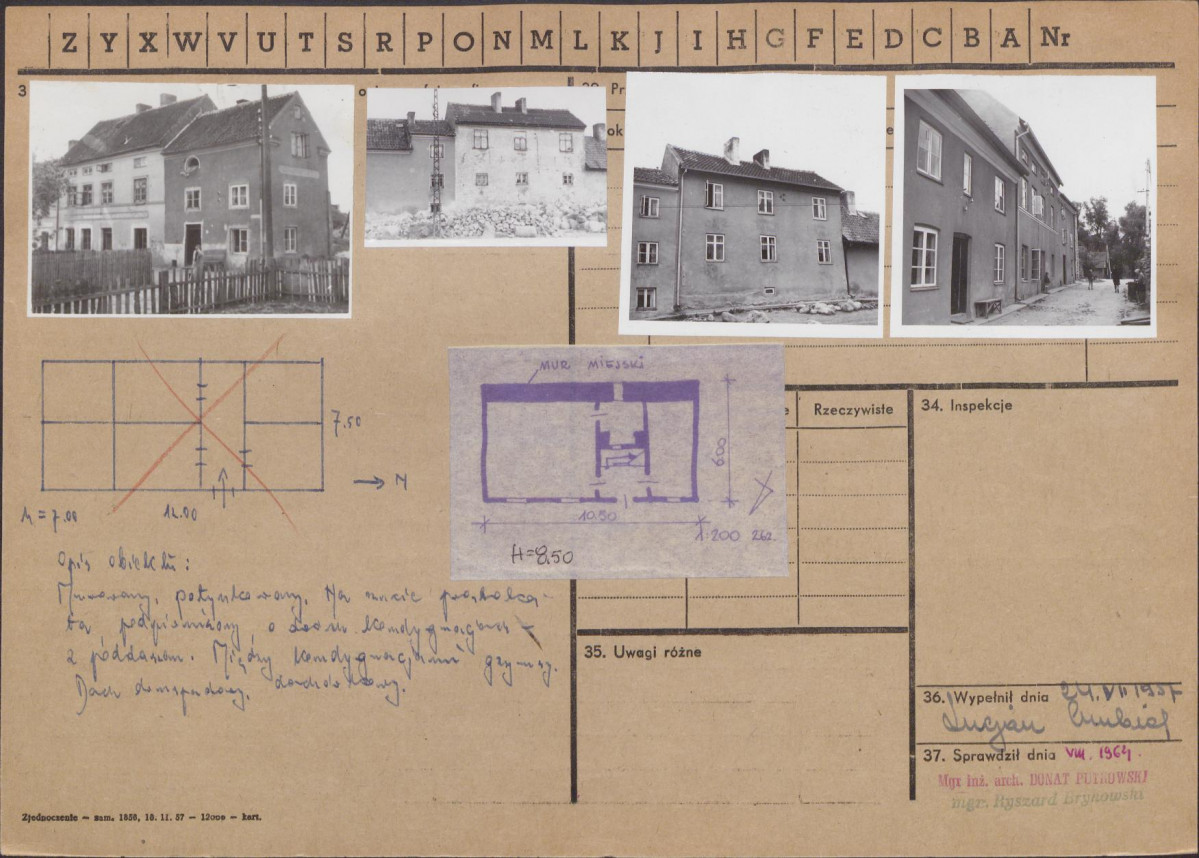 Z Y X W V U T S R P O N M L K J I H G F E D C B A Nr
3
Pr
ok
e
MUR MIEJSKI
600
10.50
1:200
H=8,50
7.50
N
h = 7.00
12.00
Opis obiektu:
Murowany, potynkowany. Na rzucie prostoką-
ta, podpiwniczony, o dwóch kondygnacjach
z poddaszem. Między kondygnacjami gzymsy.
Dach dwuspadowy, dachówkowy.
e
Rzeczywiste
34. Inspekcje
35. Uwagi różne
36. Wypełnił dnia 24.VII 1957
Lucjan
37. Sprawdził dnia VIII. 1964
Mgr inż. arch. DONAT PUTKOWSKI
mgr. Ryszard Brykowski
Zjednoczenie – zam. 1858, 18. II. 57 – 12000 – kart.